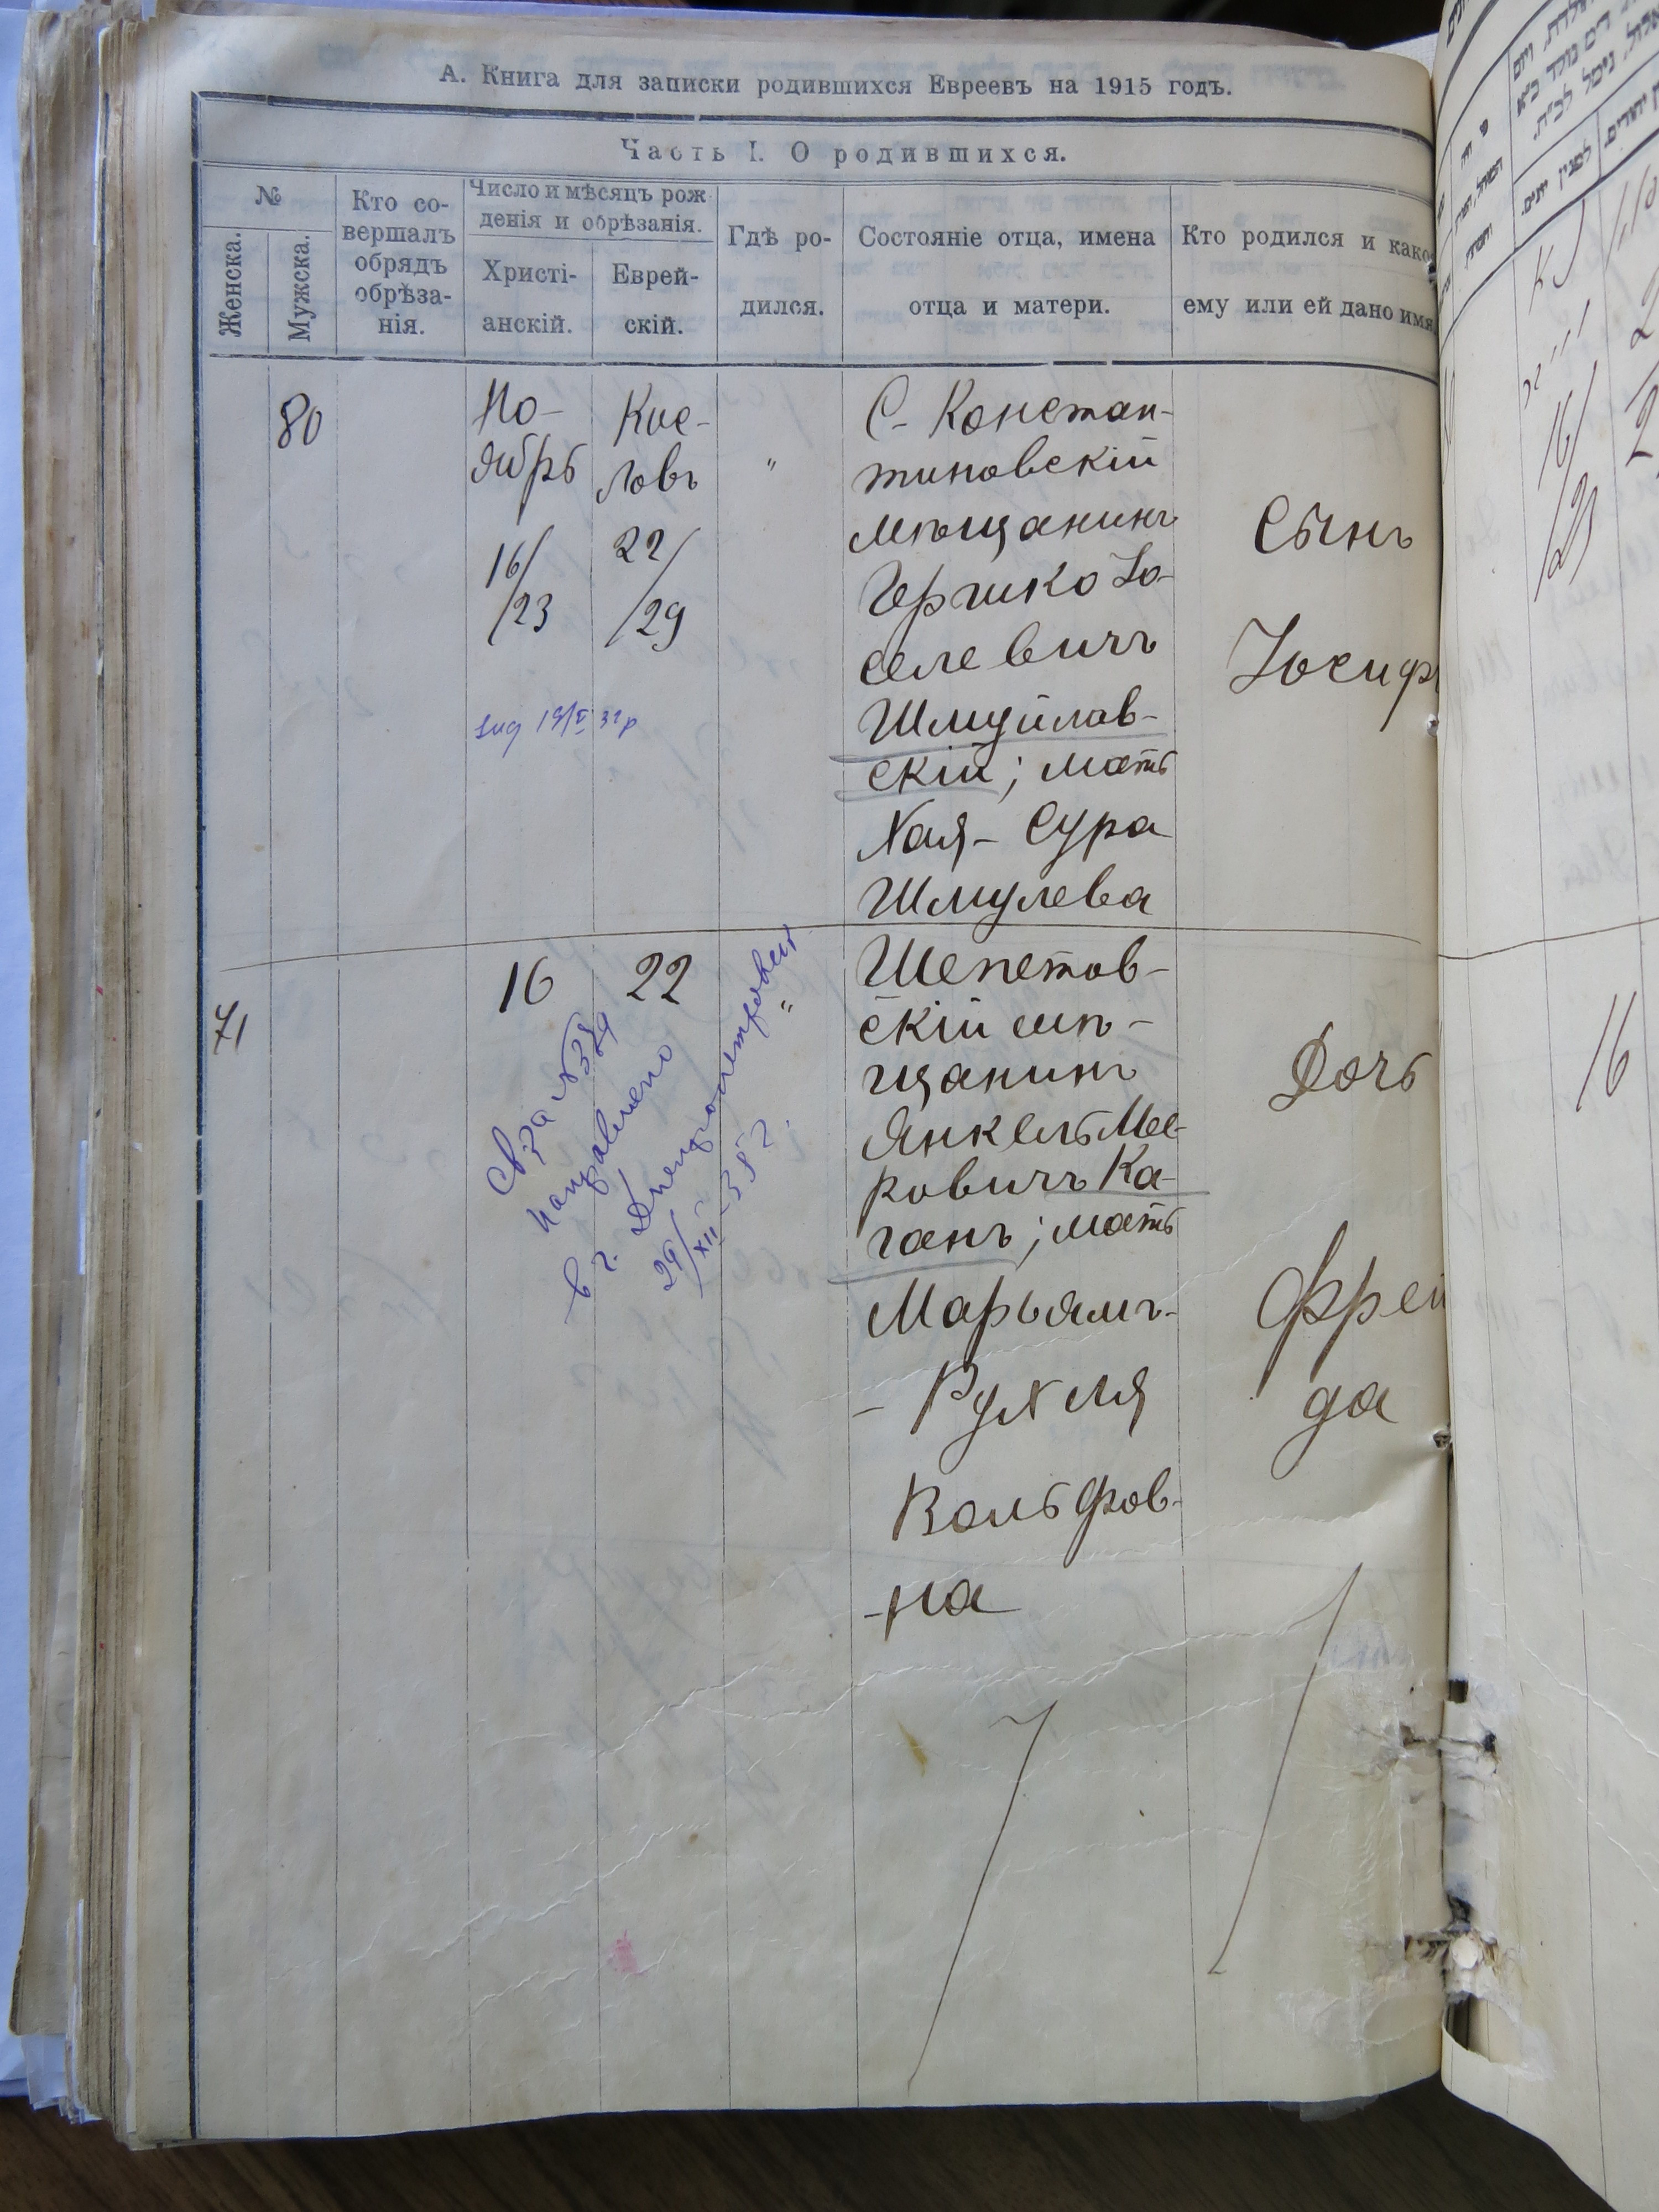 А. Книга для записки родившихся Евреевъ на 1915 годъ.
Часть I. О родившихся.
№
Женска.
Мужска.
Кто со-
вершалъ
обрядъ
обрѣза-
нія.
Число и мѣсяцъ рож
денія и обрѣзанія.
Христі-
анскій.
Еврей-
скій.
Гдѣ ро-
дился.
Состояніе отца, имена
отца и матери.
Кто родился и како
ему или ей дано имя
80
Но-
ябрь
16/
/23
Кис-
ловъ
22/
/29
"
С-Констан-
тиновскій
мѣщанинъ
Гершко Іо-
селевичъ
Шмуйлов-
скій; мать
Хая-Сура
Шмулева
Сынъ
Іосифъ
71
16
22
"
Шепетов-
скій мѣ-
щанинъ
Янкель Мее-
ровичъ Ка-
ганъ; мать
Марьямъ-
-Рухля
Вольфов-
-на
Дочь
Фрей
да
направлено
в г. Днепропетровск
29/XII-38 г.
16